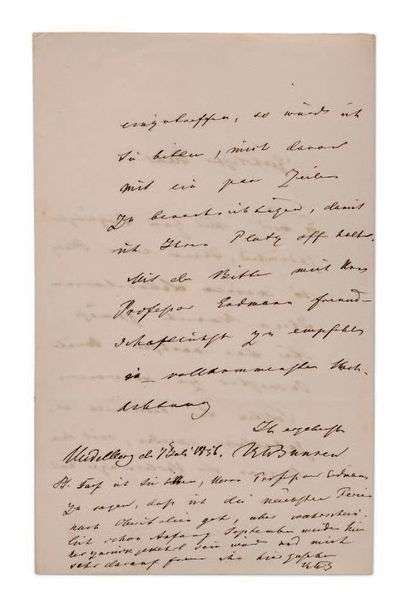 einzutreffen, so würde ich
Sie bitten, mich davon
mit ein paar Zeilen
zu benachrichtigen, damit
ich Ihren Platz off halte.
Mit der Bitte mich Herrn
Professor Erdmann freund-
schaftlichst zu empfehlen
in vollkommenster Hoch-
achtung
Ihr ergebenster
Heidelberg d Juli RWBunsen
Darf ich Sie bitten, Herrn Professor Erdmann
zu sagen, daß ich die nächsten Ferien
nach
schon Anfang September wieder hier
sein und mich
sehr darauf freue ihn hier zu sehn